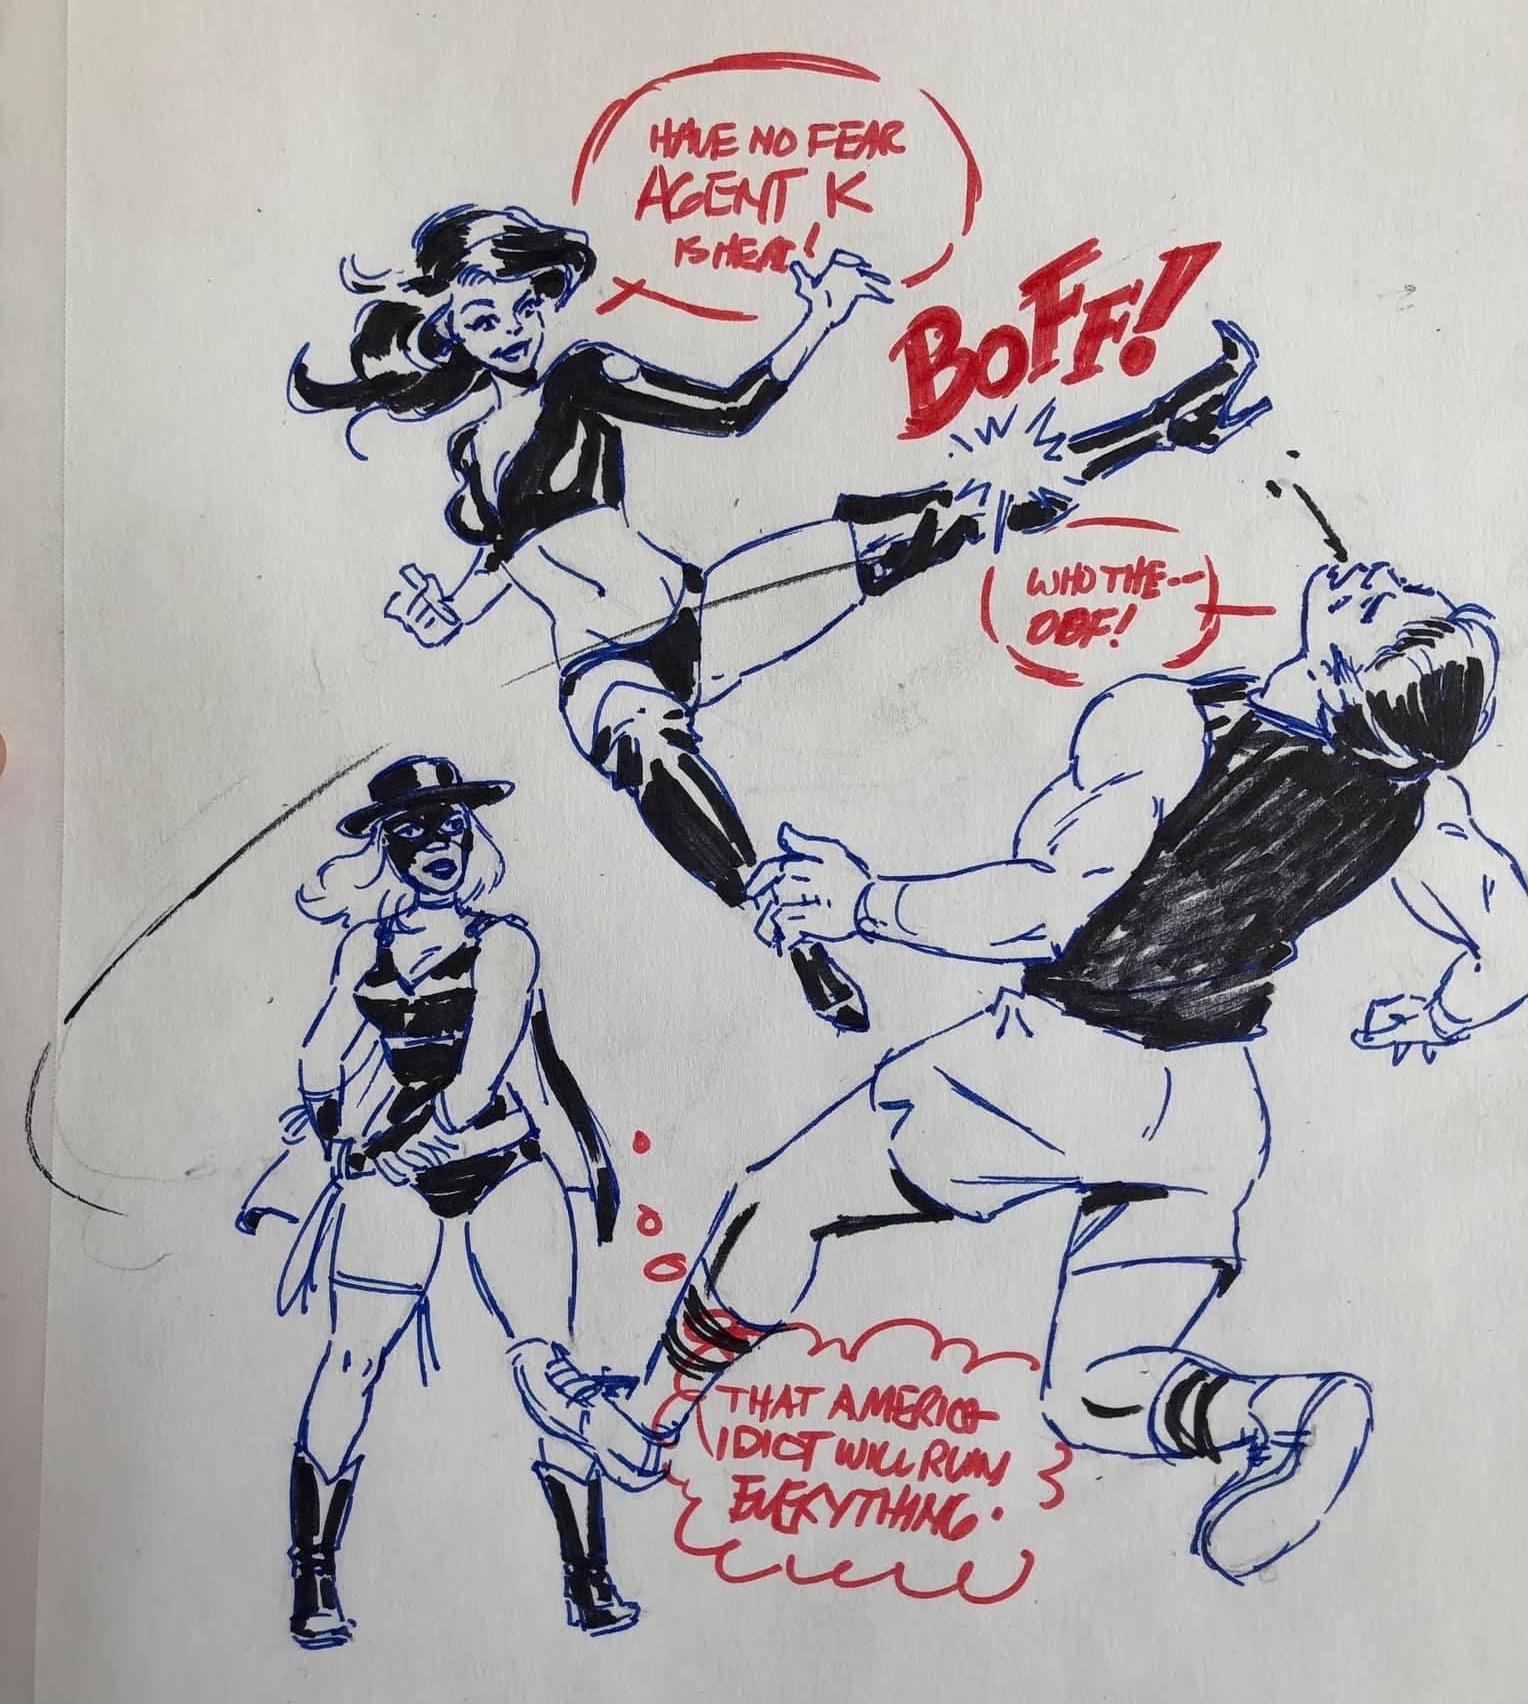 HAVE NO FEAR
AGENT K
IS HERE!
BOFF!
WHO THE--
OBF!
THAT AMERICA
IDIOT WILL RUIN
EVERYTHING.